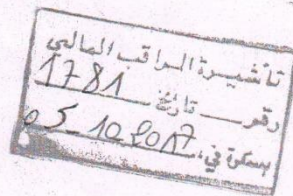 تأشيرة المراقب المالي
رقم 1781 تاريخ
بسكرة في، 05 10 2017